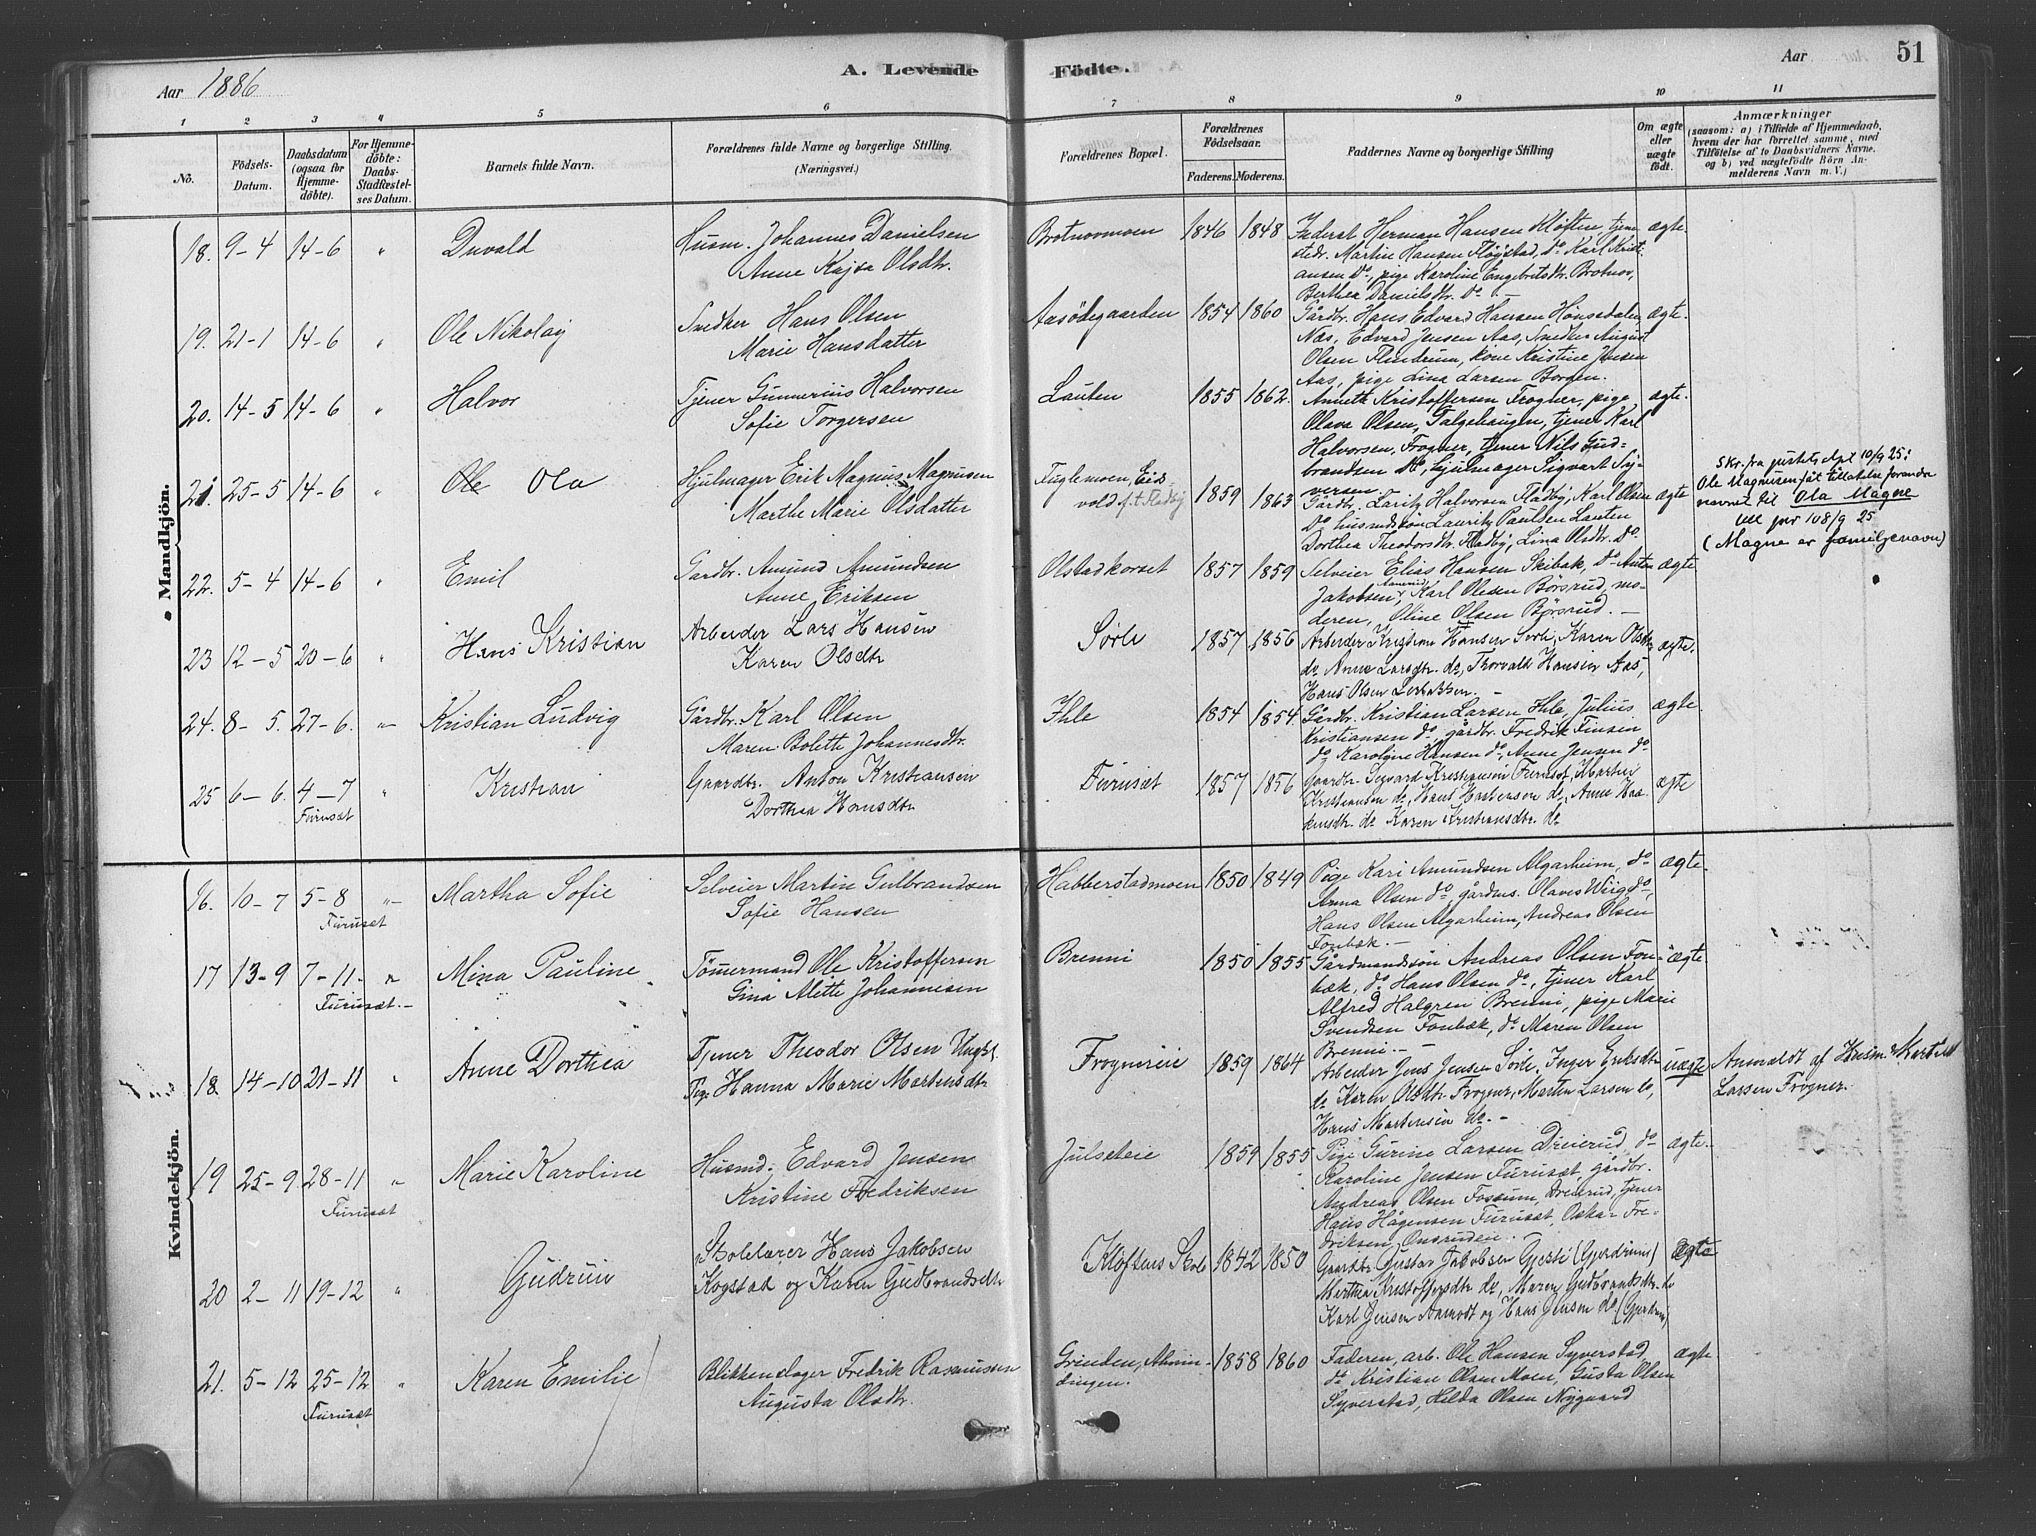 Aar 1886
A. Levende Födte.
Aar
51
1 2 3 4 5 6 7 8 9 10 11
No.
Födsels-Datum.
Daabsdatum (ogsaa for Hjemme-döbte).
For Hjemme-döbte: Daabs-Stadfæstel-ses Datum.
Barnets fulde Navn.
Forældrenes fulde Navne og borgerlige Stilling. (Næringsvei.)
Forældrenes Bopæl.
Forældrenes Födselsaar.
Faderens. Moderens.
Faddernes Navne og borgerlige Stilling
Om ægte eller uægte födt.
Anmærkninger
(saasom: a) i Tilfælde af Hjemmedaab, hvem der har forrettet samme, med Tilföielse af to Daabsvidners Navne, og b) ved uægtefödte Börn An-melderens Navn m. V.)
Mandkjön.
18. 9-4 14-6 " Duvald
Husm. Johannes Danielsen
Anne Kajsa Olsdtr.
Brotnovmoen 1846 1848
Inderst Herman Hansen Kløften, tjene-
stedr. Martin Hansen Fløgstad, do Karl Kristi-
ansen do, pige Karoline Engebretsdtr. Brotnov,
Berthea Danielsdtr. do -
ægte
19. 21-1 14-6 " Ole Nikolay
Snedker Hans Olsen
Marie Hansdatter
Aasödegaarden 1854 1860
Gårdbr. Hans Edvard Hansen Hönsedalen
Næs, Edvard Jensen Aas, Snedker August
Olsen Flindrum, kone Kristine Jensen
Aas, pige Lina Larsen Borgen.
ægte.
20. 14-5 14-6 " Halvor
Tjener Gunnerius Halvorsen
Sofie Torgersen
Lauten 1855 1862.
Anneth Kristoffersen Frogner, pige
Olava Olsen, Falgehaugen, tjener Karl
Halvorsen, Frogner, tjener Nils Gud-
brandsen do, hjulmager Sigvart Sy-
versen
ægte.
21 25-5 14-6 " Ole Ola
Hjulmager Erik Magnus Magnusen
Marthe Marie Olsdatter
Fuglemoen, Eids
vold f.t. Fladby
1859 1863
Gårdbr. Laritz Halvorsen Fladby, Karl Olsen
do husmdsön Lauritz Paulsen Lauten
Dorthea Theodorsdtr. Fladby, Lina Olsdtr. do.
ægte
Skr. fra justets dpt 10/9 25:
Ole Magnusen fåt tillatelse forandre
navnet til Ola Magne
(Magne er familjenavn)
22. 5-4 14-6 " Emil
Gardbr. Amund Amundsen
Anne Eriksen
Olstadkorset 1857 1859
Selveier Elias Hansen Skibak, do Anton
Jakobsen, Karl Olsen Börsrud, mo-
deren, Oline Olsen Börsrud. -
ægte
23 12-5 20-6 " Hans Kristian
Arbeider Lars Hansen
Karen Olsdtr
Sörle 1857 1856
Arbeider Kristian Hansen Sörli, Karen Olsdtr
do Anna Larsdtr. do, Thorvald Hansen Aas,
Hans Olsen
ægte.
24. 8-5. 27-6. " Kristian Ludvig
Gårdbr. Karl Olsen
Maren Bolette Johannesdtr.
Ihle 1854 1854
Gårdbr. Kristian Larsen Ihle, Julius
Kristiansen do, gårdbr. Fredrik Finsen
do, Karoline Hansen do, Anne Jensen do
ægte
25 6-6. 4-7 " Kristian
Furuset
Gaardbr. Anton Kristiansen
Dorthea Hansdtr
Furuset 1857 1856
Gaardbr. Sigvard Kristiansen Furuset, Martin
Kristiansen do, Hans Mortensen do, Anne Haa-
kensdtr. do Karen Kristiansdtr. do
ægte
Kvindekjön.
16. 10-7 5-8 " Martha Sofie
Furuset
Selveier Martin Gulbrandsen
Sofie Hansen
Habberstadmoen 1850 1849
Pige Kari Amundsen Algarheim, do
Anna Olsen do, gårdms. Olaves Wiig do,
Hans Olsen Algarheim, Andreas Olsen
Fonbæk. -
ægte
17 13-9 7-11. " Mina Pauline
Furuset.-
Tömmermand Ole Kristoffersen
Gina Alette Johannesen
Brenni 1850 1855
Gårdmandsön Andreas Olsen Fon-
bæk, do Hans Olsen do, tjener Karl
Alfred Halgren Brenni, pige Marie
Svendsen Fonbæk, do Maren Olsen
Brenni. -
ægte
18. 14-10 21-11 " Anne Dorthea
Tjener Theodor Olsen Ungk.
Pig. Hanna Marie Martinsdtr
Frognereie 1859 1864
Arbeider Jens Jensen Sörle, Inger Eriksdtr
do Karen Olsdtr Frogner, Martin Larsen do,
Hans Martensen do. -
uægte
Anmeldt af Husm. Martin
Larsen Frogner.
19 25-9. 28-11 " Marie Karoline
Furuset
Husmd. Edvard Jensen
Kristine Fredriksen
Julseteie 1859 1855
Pige Gurine Larsen Dreierud, do
Karoline Jensen Furuset, Gårdbr.
Andreas Olsen Fossum, Dreierud, tjener
Hans Hågensen Furuset, Oskar Fre-
driksen,
ægte.
20 2-11 19-12 " Gudrun
Skolelærer Hans Jakobsen
Kogstad og Karen Gudbrandsdtr
Klöftens Skole 1842 1850
Gaardbr Gustav Jakobsen Gjesti (Gjerdrum)
Merthea Kristoffersdtr do, Maren Gudbrandsdtr. do
Karl Jensen Aamodt og Hans Jensen do. (Gjerdrum)
Ægte
21. 5-12 25-12 " Karen Emilie
Furuset
Blikkenslager Fredrik Rasmussen
Augusta Olsdtr.
Grinden, Almin-
dingen. 1858 1860
Faderen, arb. Ole Hansen Syverstad,
do Kristian Olsen Moen, Gusta Olsen
Syverstad, Hilda Olsen Nygaard
ægte